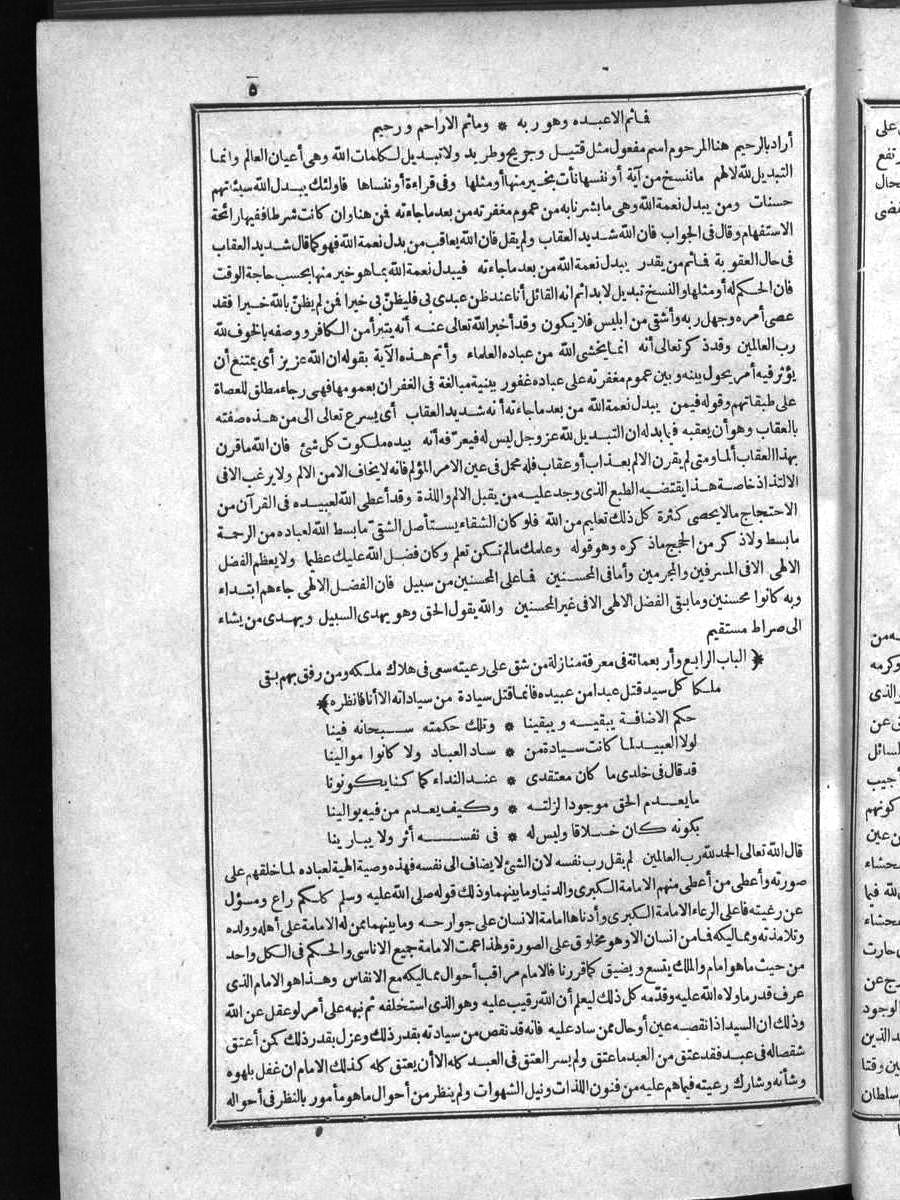 ٥
فماثم الاعبده وهو ربه * وماثم الاراحم ورحيم
أراد بالرحيم هنا المرحوم اسم مفعول مثل قتيل وجريح وطريد ولا تبديل لكلمات الله وهى أعيان العالم وانما
التبديل لله لا لهم ماننسخ من آية أو ننسها نأت بخير منها أو مثلها وفى قراءة أو ننساها فاولئك يبدل الله سيئاتهم
حسنات ومن يبدل نعمة الله وهى ما بشرنا به من عموم مغفرته من بعد ماجاءته فمن هنا وان كانت شرطا ففيها رائحة
الاستفهام وقال فى الجواب فان الله شديد العقاب ولم يقل فان الله يعاقب من بدل نعمة الله فهو كما قال شديد العقاب
فى حال العقوبة فماثم من يقدر يبدل نعمة الله من بعد ماجاءته فيبدل نعمة الله بما هو خير منها بحسب حاجة الوقت
فان الحكم له أو مثلها والنسخ تبديل لا بدا ثم انه القائل أنا عند ظن عبدى بى فليظنّ بى خيرا فمن لم يظنّ بالله خيرا فقد
عصى أمره وجهل ربه وأشقى من ابليس فلا يكون وقد أخبر الله تعالى عنه أنه يتبرأ من الكافر ووصفه بالخوف لله
رب العالمين وقد ذكر تعالى أنه انما يخشى الله من عباده العلماء وأتم هذه الآية بقوله ان الله عزيز أى يمتنع أن
يؤثر فيه أمر يحول بينه وبين عموم مغفرته على عباده غفور ببنية مبالغة فى الغفران بعمومها فهى رجاء مطلق للعصاة
على طبقاتهم وقوله فيمن يبدل نعمة الله من بعد ماجاءته أنه شديد العقاب أى يسرع تعالى الى من هذه صفته
بالعقاب وهو أن يعقبه فيما بدله ان التبديل لله عز وجل ليس له فيعرّفه أنه بيده ملكوت كل شئ فان الله ماقرن
بهذا العقاب ألما ومتى لم يقرن الالم بعذاب أو عقاب فله محمل فى عين الامر المؤلم فانه لا يخاف الا من الالم ولا يرغب الافى
الالتذاذ خاصة هذا يقتضيه الطبع الذى وجد عليه من يقبل الالم واللذة وقد أعطى الله لعبيده فى القرآن من
الاحتجاج مالا يحصى كثرة كل ذلك تعليم من الله فلو كان الشقاء يستأصل الشقىّ ما بسط الله لعباده من الرحمة
ما بسط ولا ذكر من الحجج ماذكره وهو قوله وعلمك مالم تكن تعلم وكان فضل الله عليك عظيما ولا يعظم الفضل
الالهى الا فى المسرفين والمجرمين وأما فى المحسنين فما على المحسنين من سبيل فان الفضل الالهى جاءهم ابتداء
وبه كانوا محسنين وما بقى الفضل الالهى الا فى غير المحسنين والله يقول الحق وهو يهدى السبيل ويهدى من يشاء
الى صراط مستقيم
﴿ الباب الرابع وأربعمائة فى معرفة منازلة من شق على رعيته سعى فى هلاك ملكه ومن رفق بهم بقى
ملكا كل سيد قتل عبدا من عبيده فانما قتل سيادة من سياداته الا أنا فانظره ﴾
حكم الاضافة يبقيه ويبقينا * وتلك حكمته سبحانه فينا
لولا العبيد لما كانت سيادة من * ساد العباد ولا كانوا موالينا
قد قال فى خلدى ما كان معتقدى * عند النداء كما كنا يكونونا
ما يعدم الحق موجودا لزلته * وكيف يعدم من فيه يوالينا
بكونه كان خلاقا وليس له * فى نفسه أثر ولا يبارينا
قال الله تعالى الحمد لله رب العالمين لم يقل رب نفسه لان الشئ لا يضاف الى نفسه فهذه وصية الهية لعباده لما خلقهم على
صورته وأعطى من أعطى منهم الامامة الكبرى والدنيا وما بينهما وذلك قوله صلى الله عليه وسلم كلكم راع ومسؤل
عن رعيته فاعلى الرعاء الامامة الكبرى وأدناها امامة الانسان على جوارحه وما بينهما ممن له الامامة على أهله وولده
وتلامذته ومماليكه فما من انسان الا وهو مخلوق على الصورة ولهذا عمت الامامة جميع الاناسى والحكم فى الكل واحد
من حيث ما هو امام والملك يتسع ويضيق كما قررنا فالامام مراقب أحوال مماليكه مع الانفاس وهذا هو الامام الذى
عرف قدر ما ولاه الله عليه وقدّمه كل ذلك ليعلم أن الله رقيب عليه وهو الذى استخلفه ثم نبهه على أمر لو عقل عن الله
وذلك ان السيد اذا نقصه عين أو حال ممن ساد عليه فانه قد نقص من سيادته بقدر ذلك وعزل بقدر ذلك كمن أعتق
شقصاله فى عبد فقد عتق من العبد ما عتق ولم يسر العتق فى العبد كله الا أن يعتق كله كذلك الامام ان غفل بلهوه
وشأنه وشارك رعيته فيما هم عليه من فنون اللذات ونيل الشهوات ولم ينظر من أحوال ما هو مأمور بالنظر فى أحواله